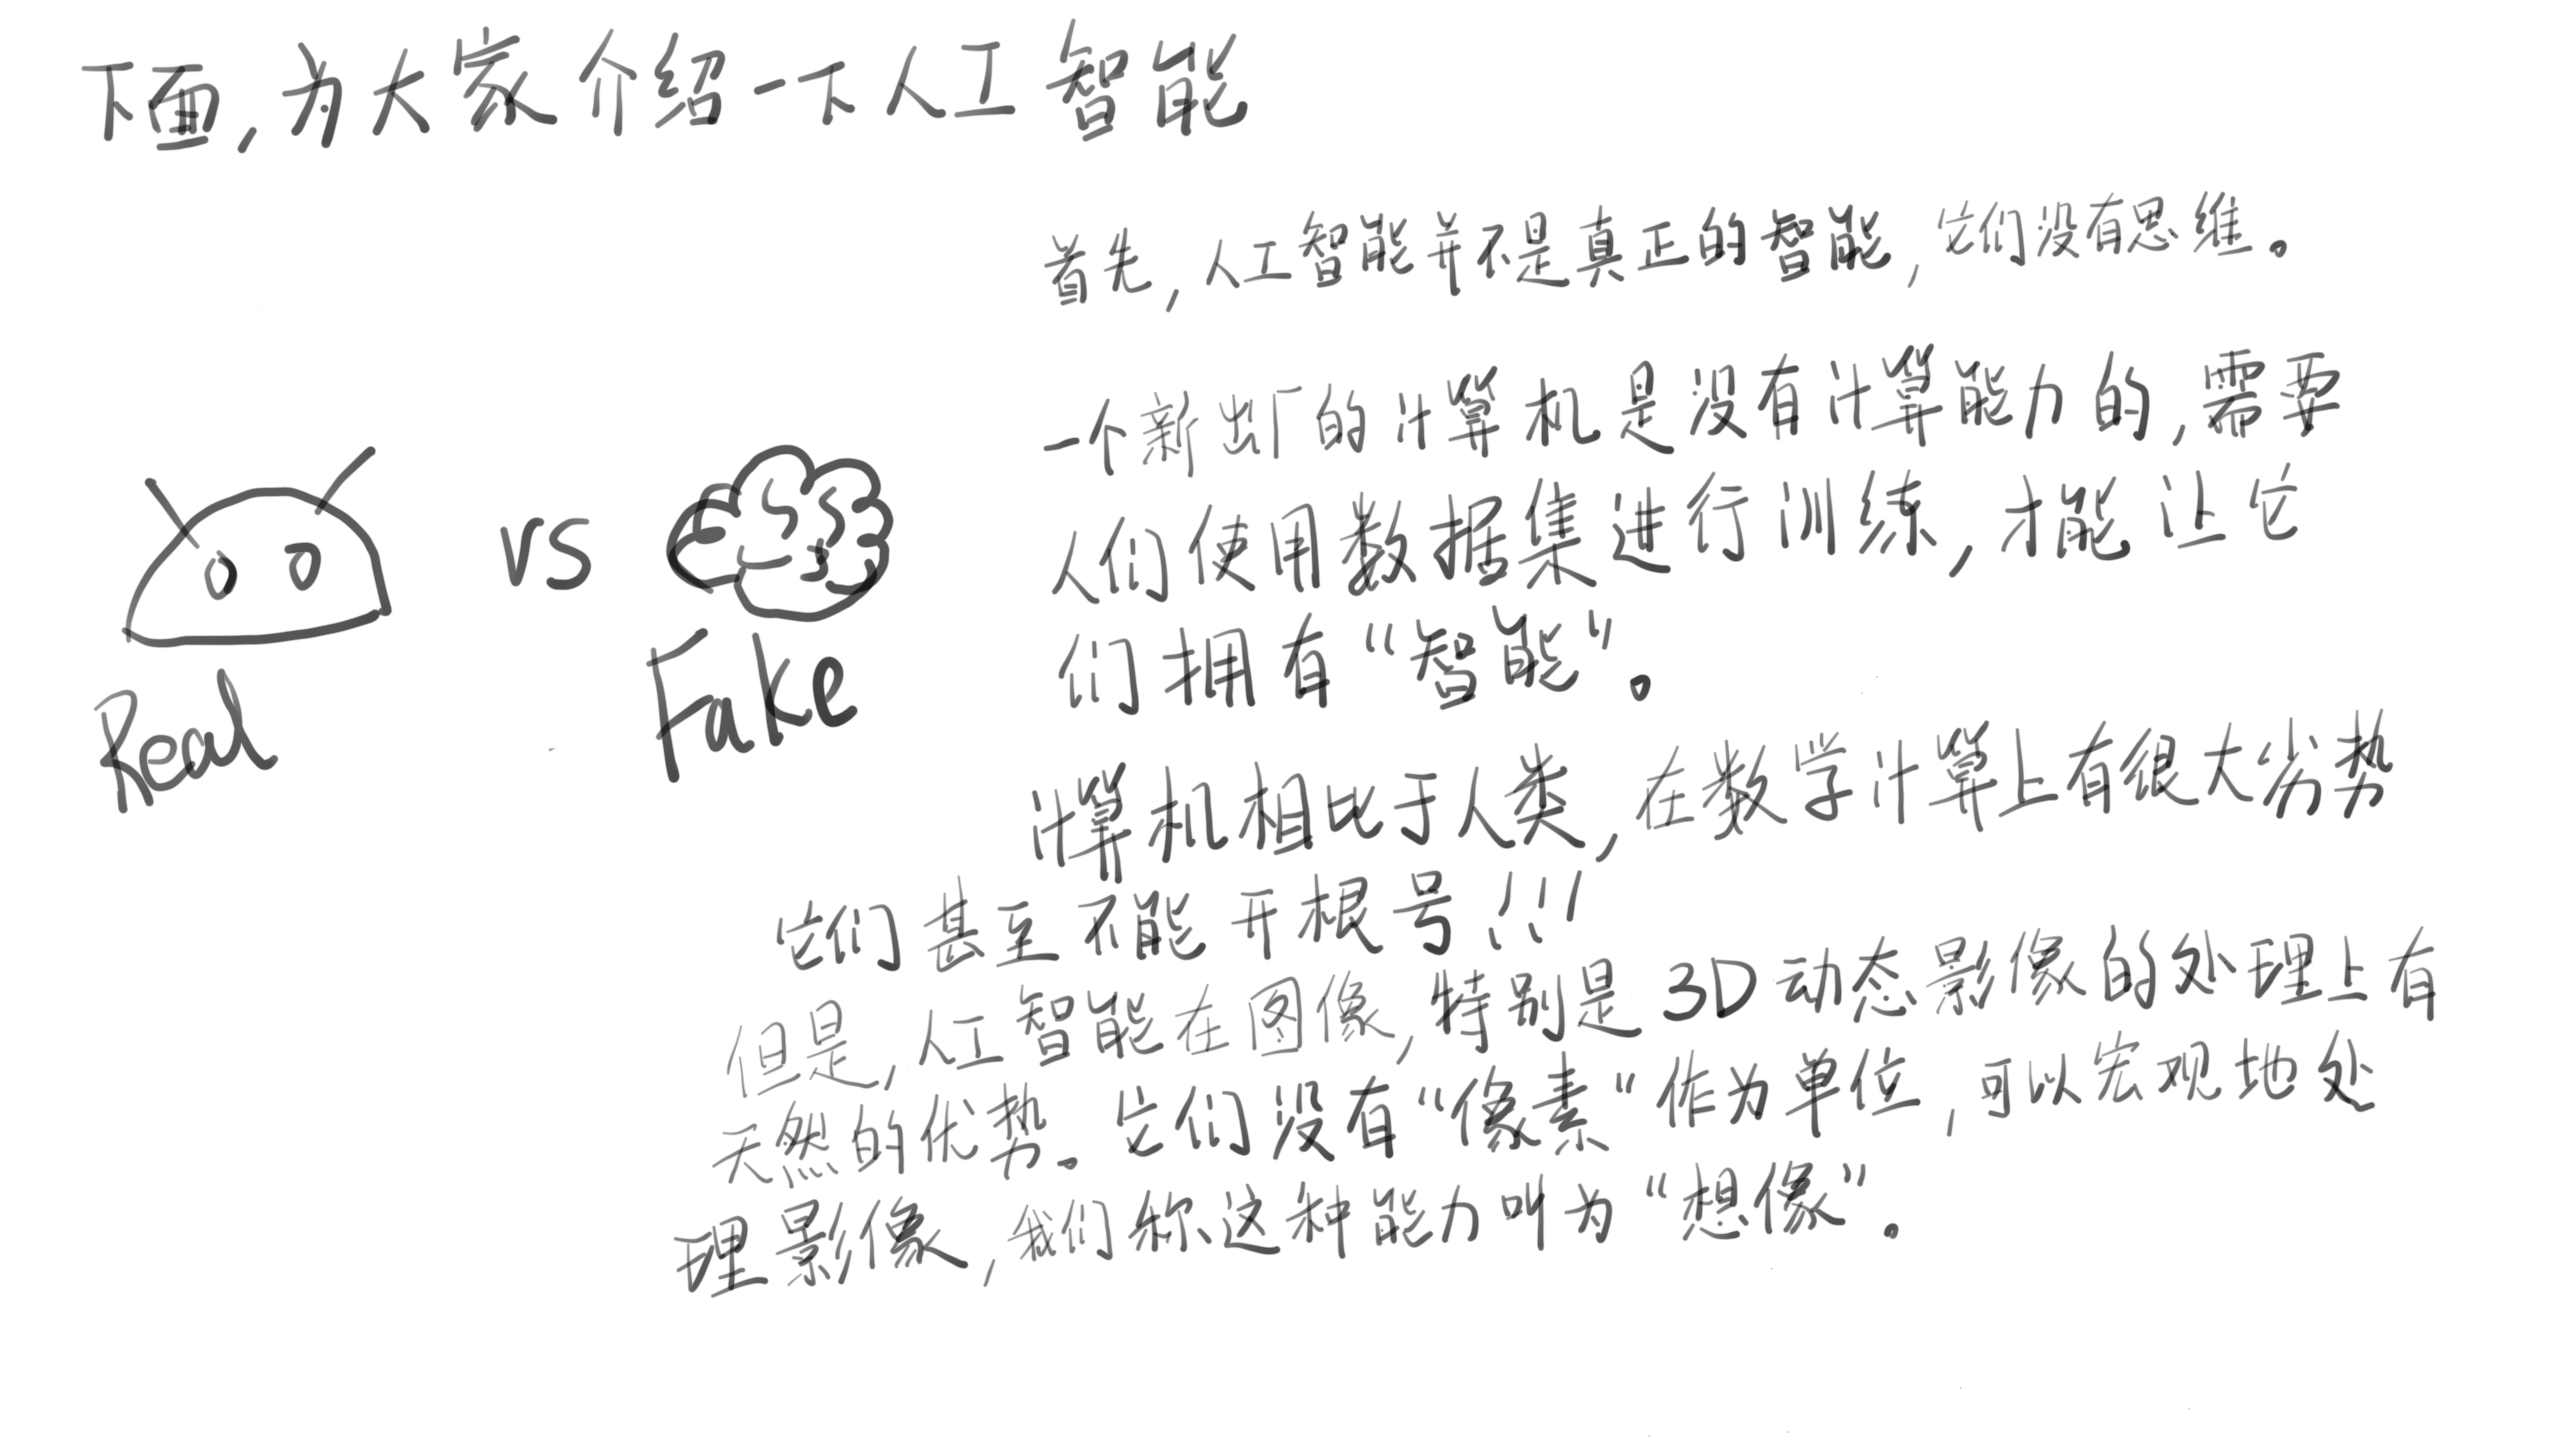 下面,为大家介绍一下人工智能
首先,人工智能并不是真正的智能,它们没有思维。
一个新出厂的计算机是没有计算能力的,需要
人们使用数据集进行训练,才能让它
们拥有“智能”。
vs
Real
Fake
计算机相比于人类,在数学计算上有很大劣势
它们甚至不能开根号!!!
但是,人工智能在图像,特别是3D动态影像的处理上有
天然的优势。它们没有“像素”作为单位,可以宏观地处
理影像,我们称这种能力叫为“想像”。